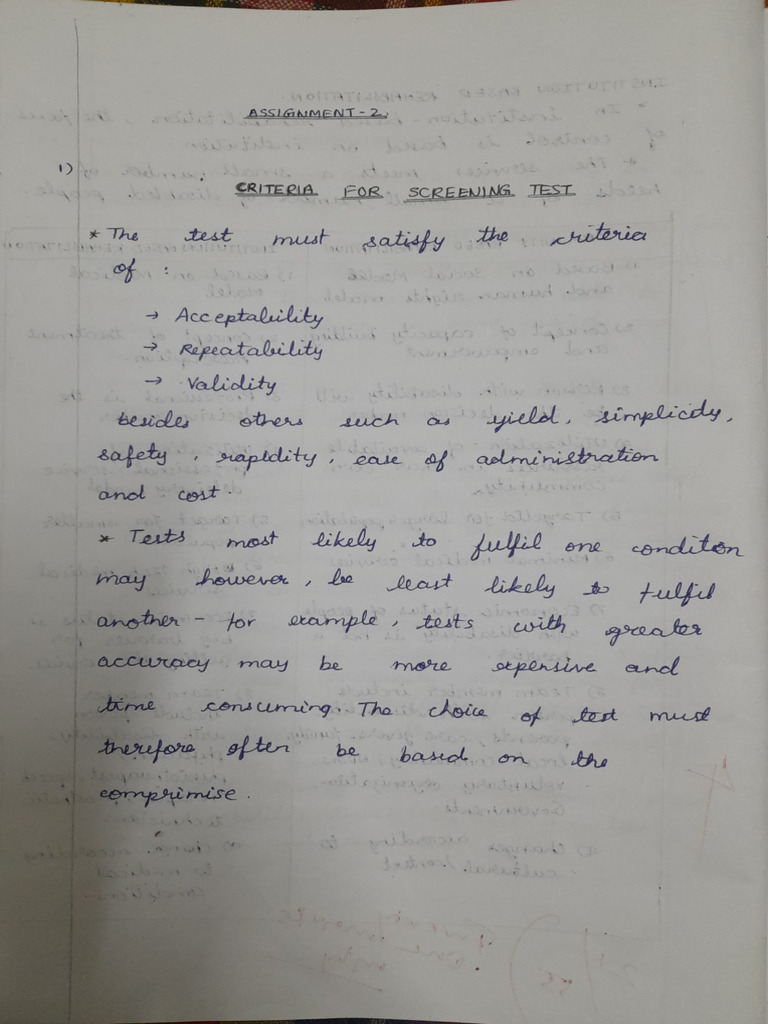 ASSIGNMENT-2
1)
CRITERIA FOR SCREENING TEST
* The test must satisfy the criteria
of :
→ Acceptability
→ Repeatability
→ Validity
besides others such as yield, simplicity,
safety, rapidity, ease of administration
and cost.
* Tests most likely to fulfil one condition
may however, be least likely to fulfil
another - for example, tests with greater
accuracy may be more expensive and
time consuming. The choice of test must
therefore often be based on the
comprimise.